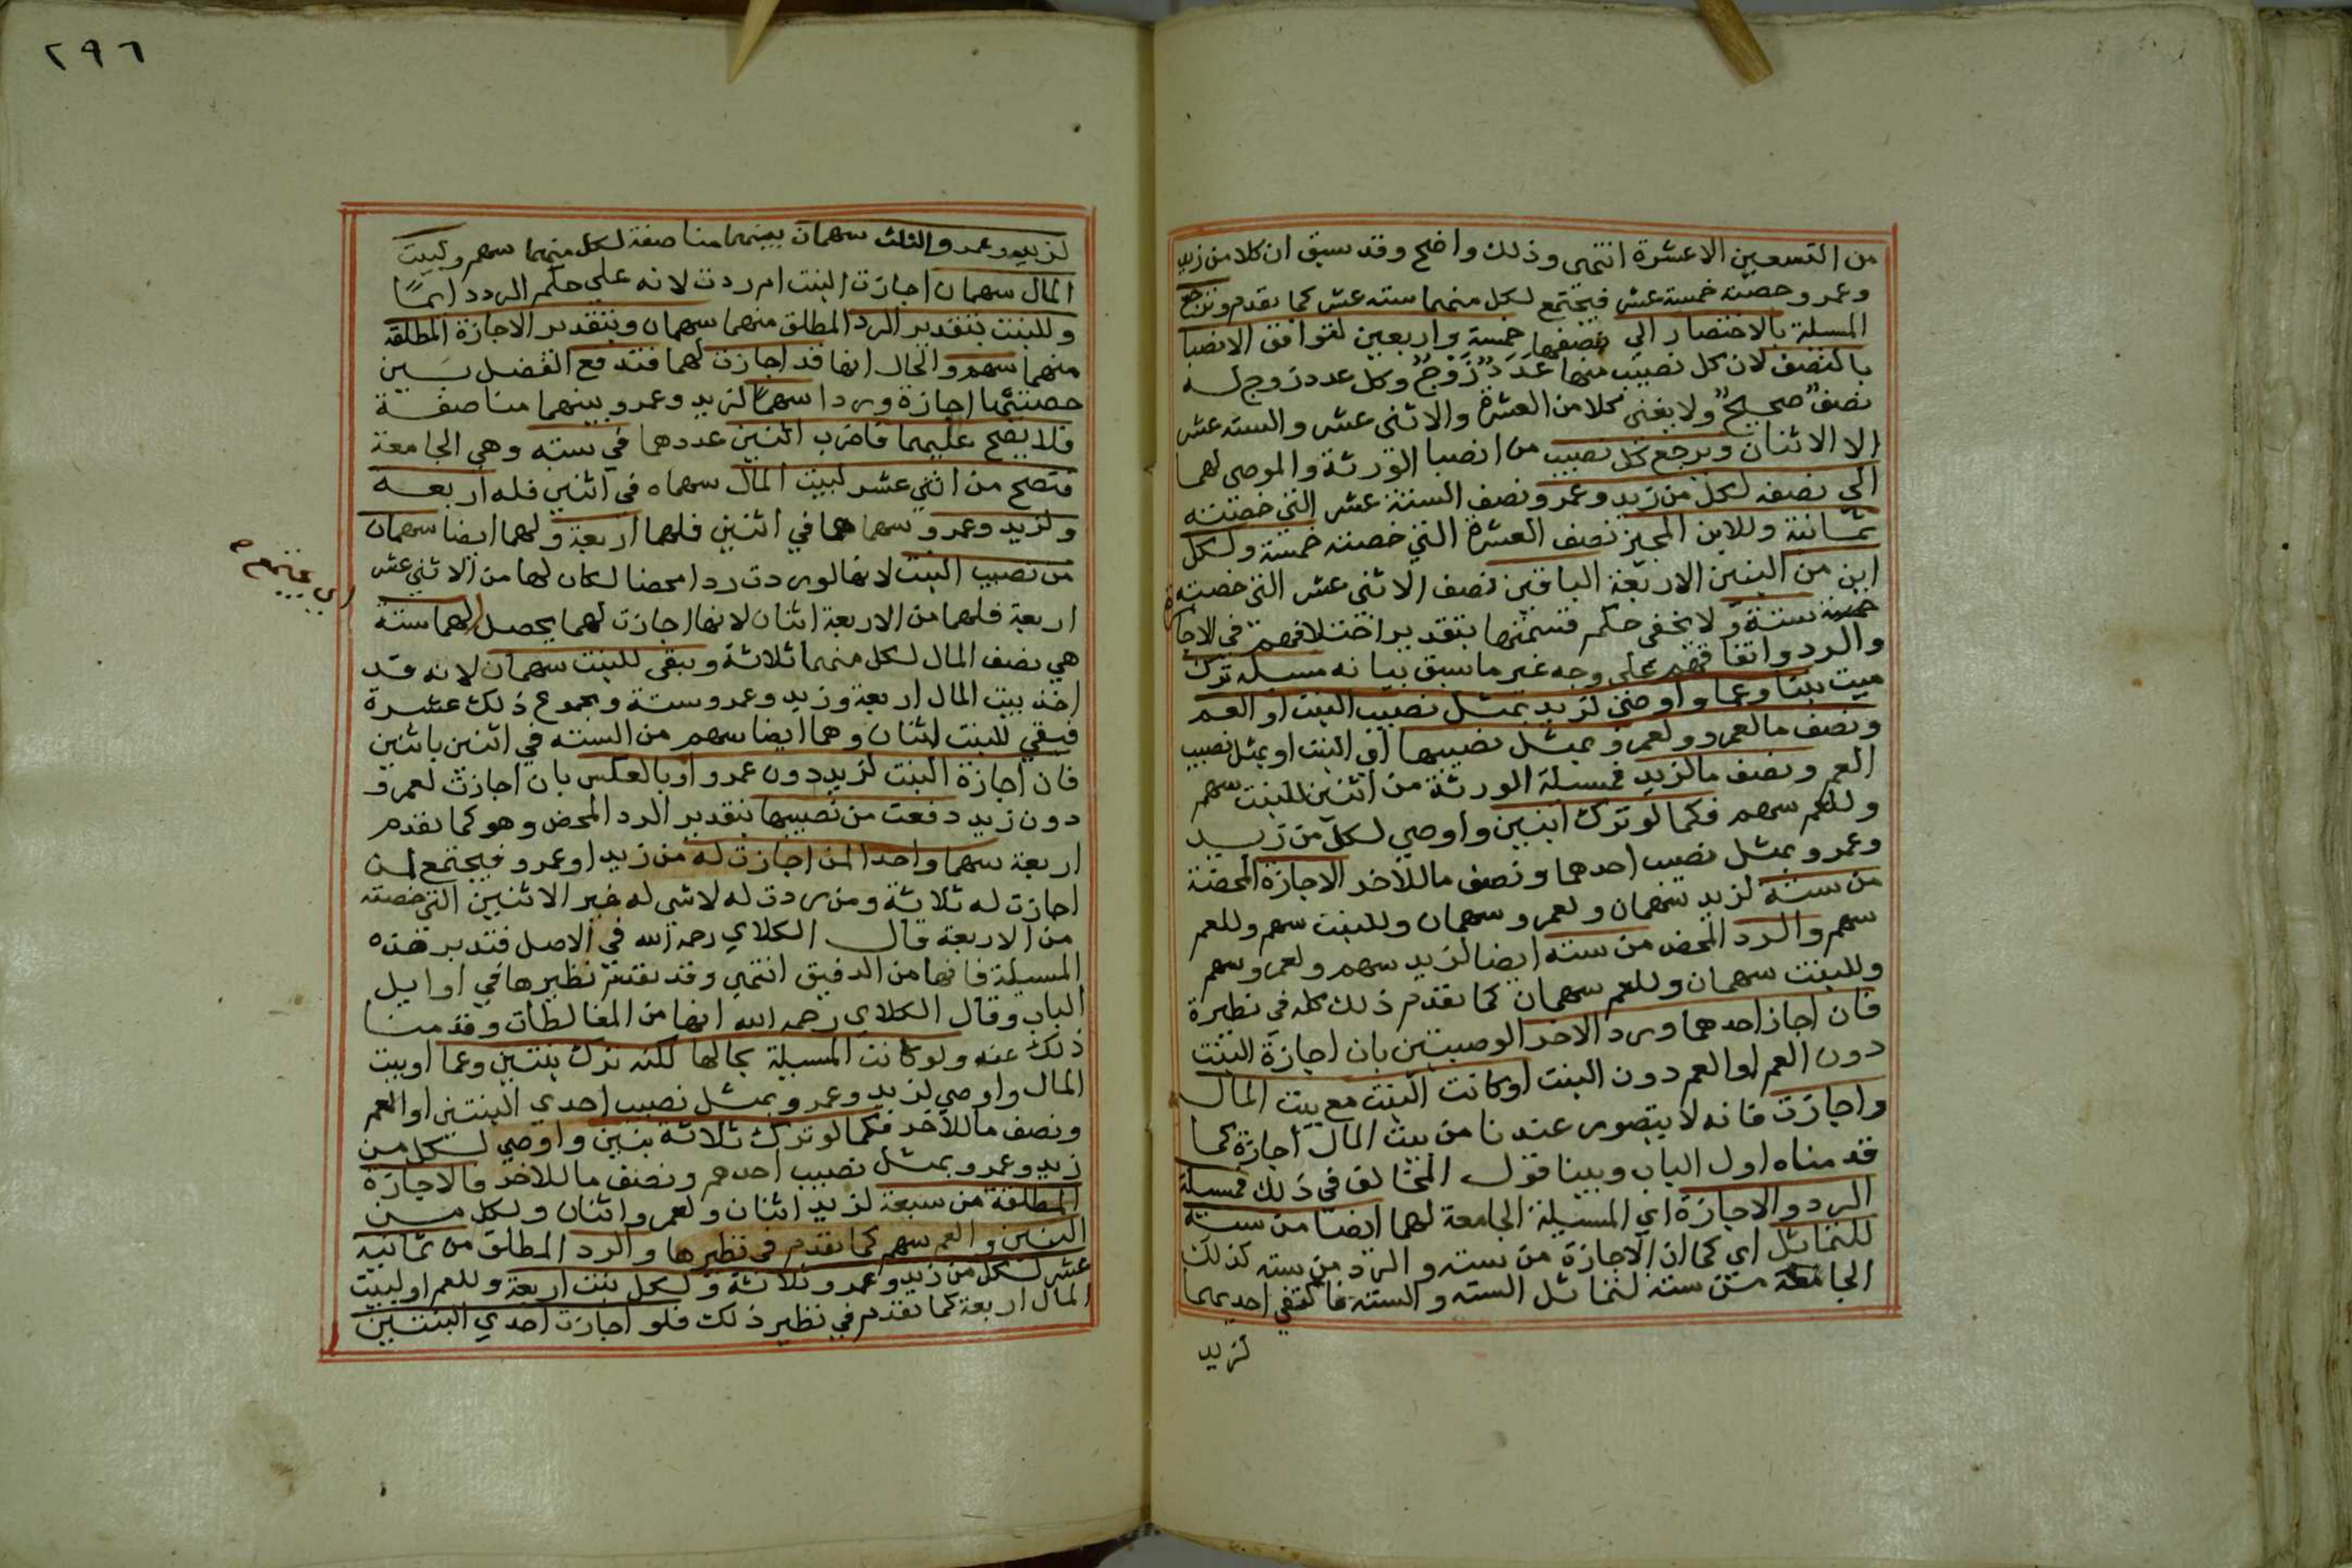 من التسعين الا عشرة انتهى وذلك واضح وقد سبق ان كلا من زيد
وعمرو حصته خمسة عشر فيجتمع لكل منهما ستة عشر كما تقدم وترجع
المسلة بالاختصار الى نصفها خمسة واربعين لتوافق الانصبا
بالنصف لان كل نصيب منها عَدَدٌ زَوْجٌ وكل عدد زوج له
نصفٌ صحيحٌ ولا يفنى كلا من العشرة والاثنى عشر والسته عشر
الا الاثنان ويرجع كل نصيب من انصبا الورثة والموصى لهما
الى نصفه لكل من زيد وعمرو نصف الستة عشر التي خصته
ثمانية وللابن المجيز نصف العشرة التي خصته خمسة ولكل
ابن من البنين الاربعة الباقين نصف الاثنى عشر التي خصته
ستة ولا يخفى حكم قسمتها بتقدير اختلافهم في الاجازة
والرد واتفاقهم على وجه غير ما سبق بيانه مسلة ترك
ميت بنتا وعما واوصى لزيد بمثل نصيب البنت او العم
ونصف ما لعمرو ولعمرو بمثل نصيبها اي البنت او بمثل نصيب
العم ونصف ما لزيد فمسلة الورثة من اثنين للبنت سهم
وللعم سهم فكما لو ترك ابنين واوصى لكل من زيد
وعمرو بمثل نصيب احدهما ونصف ما للاخر الاجازة المحضة
من ستة لزيد سهمان ولعمرو سهمان وللبنت سهم وللعم
سهم والرد المحض من ستة ايضا لزيد سهم ولعمرو سهم
وللبنت سهمان وللعم سهمان كما تقدم ذلك كله في نظيرة
فان اجاز احدهما ورد الاخر الوصيتين بان اجازة البنت
دون العم او العم دون البنت او كانت البنت مع بيت المال
واجازت فانه لا يتصور عندنا من بيت المال اجازة كما
قدمناه اول الباب وبينا قول المخالف في ذلك فمسلة
الرد والاجازة اي المسيلة الجامعة لهما ايضا من ستة
للتماثل اي كما ان الاجازة من سته والرد من سته كذلك
الجامعة من سته لتماثل السته والسته فاكتفي احديهما
لزيد
٢٩٦
لزيد وعمرو الثلث سهمان بينهما مناصفة لكل منهما سهم ولبيت
المال سهمان اجازت البنت ام ردت لانه على حكم الرد دايمًا
وللبنت بتقدير الرد المطلق منهما سهمان وبتقدير الاجازة المطلقه
منهما سهم والحال انها قد اجازت لهما فتدفع الفضل بين
حصتيها اجازة وردا سهمًا لزيد وعمرو بينهما مناصفة
فلا يصح عليهما فاضرب اثنين عددهما في سته وهي الجامعة
فتصح من اثني عشر لبيت المال سهماه في اثنين فله اربعه
ولزيد وعمرو سهماهما في اثنين فلهما اربعة ولهما ايضا سهمان
من نصيب البنت لانها لو ردت ردا محضا لكان لها من الاثني عشر
اربعة فلهما من الاربعة اثنان لانها اجازت لهما يحصل لهما ستة
اي يجتمع
هي نصف المال لكل منهما ثلاثة ويبقى للبنت سهمان لانه قد
اخذ بيت المال اربعة وزيد وعمرو ستة ومجموع ذلك عشرة
فبقي للبنت اثنان وهما ايضا سهم من السته في اثنين باثنين
فان اجازة البنت لزيد دون عمرو او بالعكس بان اجازت لعمرو
دون زيد دفعت من نصيبها بتقدير الرد المحض وهو كما تقدم
اربعة سهما واحدا لمن اجازت له من زيد او عمرو فيجتمع لمن
اجازت له ثلاثة ومن ردت له لا شي له غير الاثنين التي خصته
من الاربعة قال الكلاي رحمه الله في الاصل فتدبر هذه
المسيلة فانها من الدقيق انتهى وقد تقدم نظيرها في اوايل
الباب وقال الكلاي رحمه الله انها من المغالطات وقدمنا
ذلك عنه ولو كانت المسيلة بحالها لكنه ترك بنتين وعما او بيت
المال واوصي لزيد وعمرو بمثل نصيب احدي البنتين او العم
ونصف ما للآخر فكما لو ترك ثلاثة بنين واوصي لكل من
زيد وعمرو بمثل نصيب احدهم ونصف ما للاخر فالاجازة
المطلقة من سبعة لزيد اثنان ولعمرو اثنان ولكل من
البنتين والعم سهم كما تقدم في نظيرها والرد المطلق من ثمانيه
عشر لكل من زيد وعمرو ثلاثة ولكل بنت اربعة وللعم او لبيت
المال اربعة كما تقدم في نظير ذلك فلو اجازت احدي البنتين